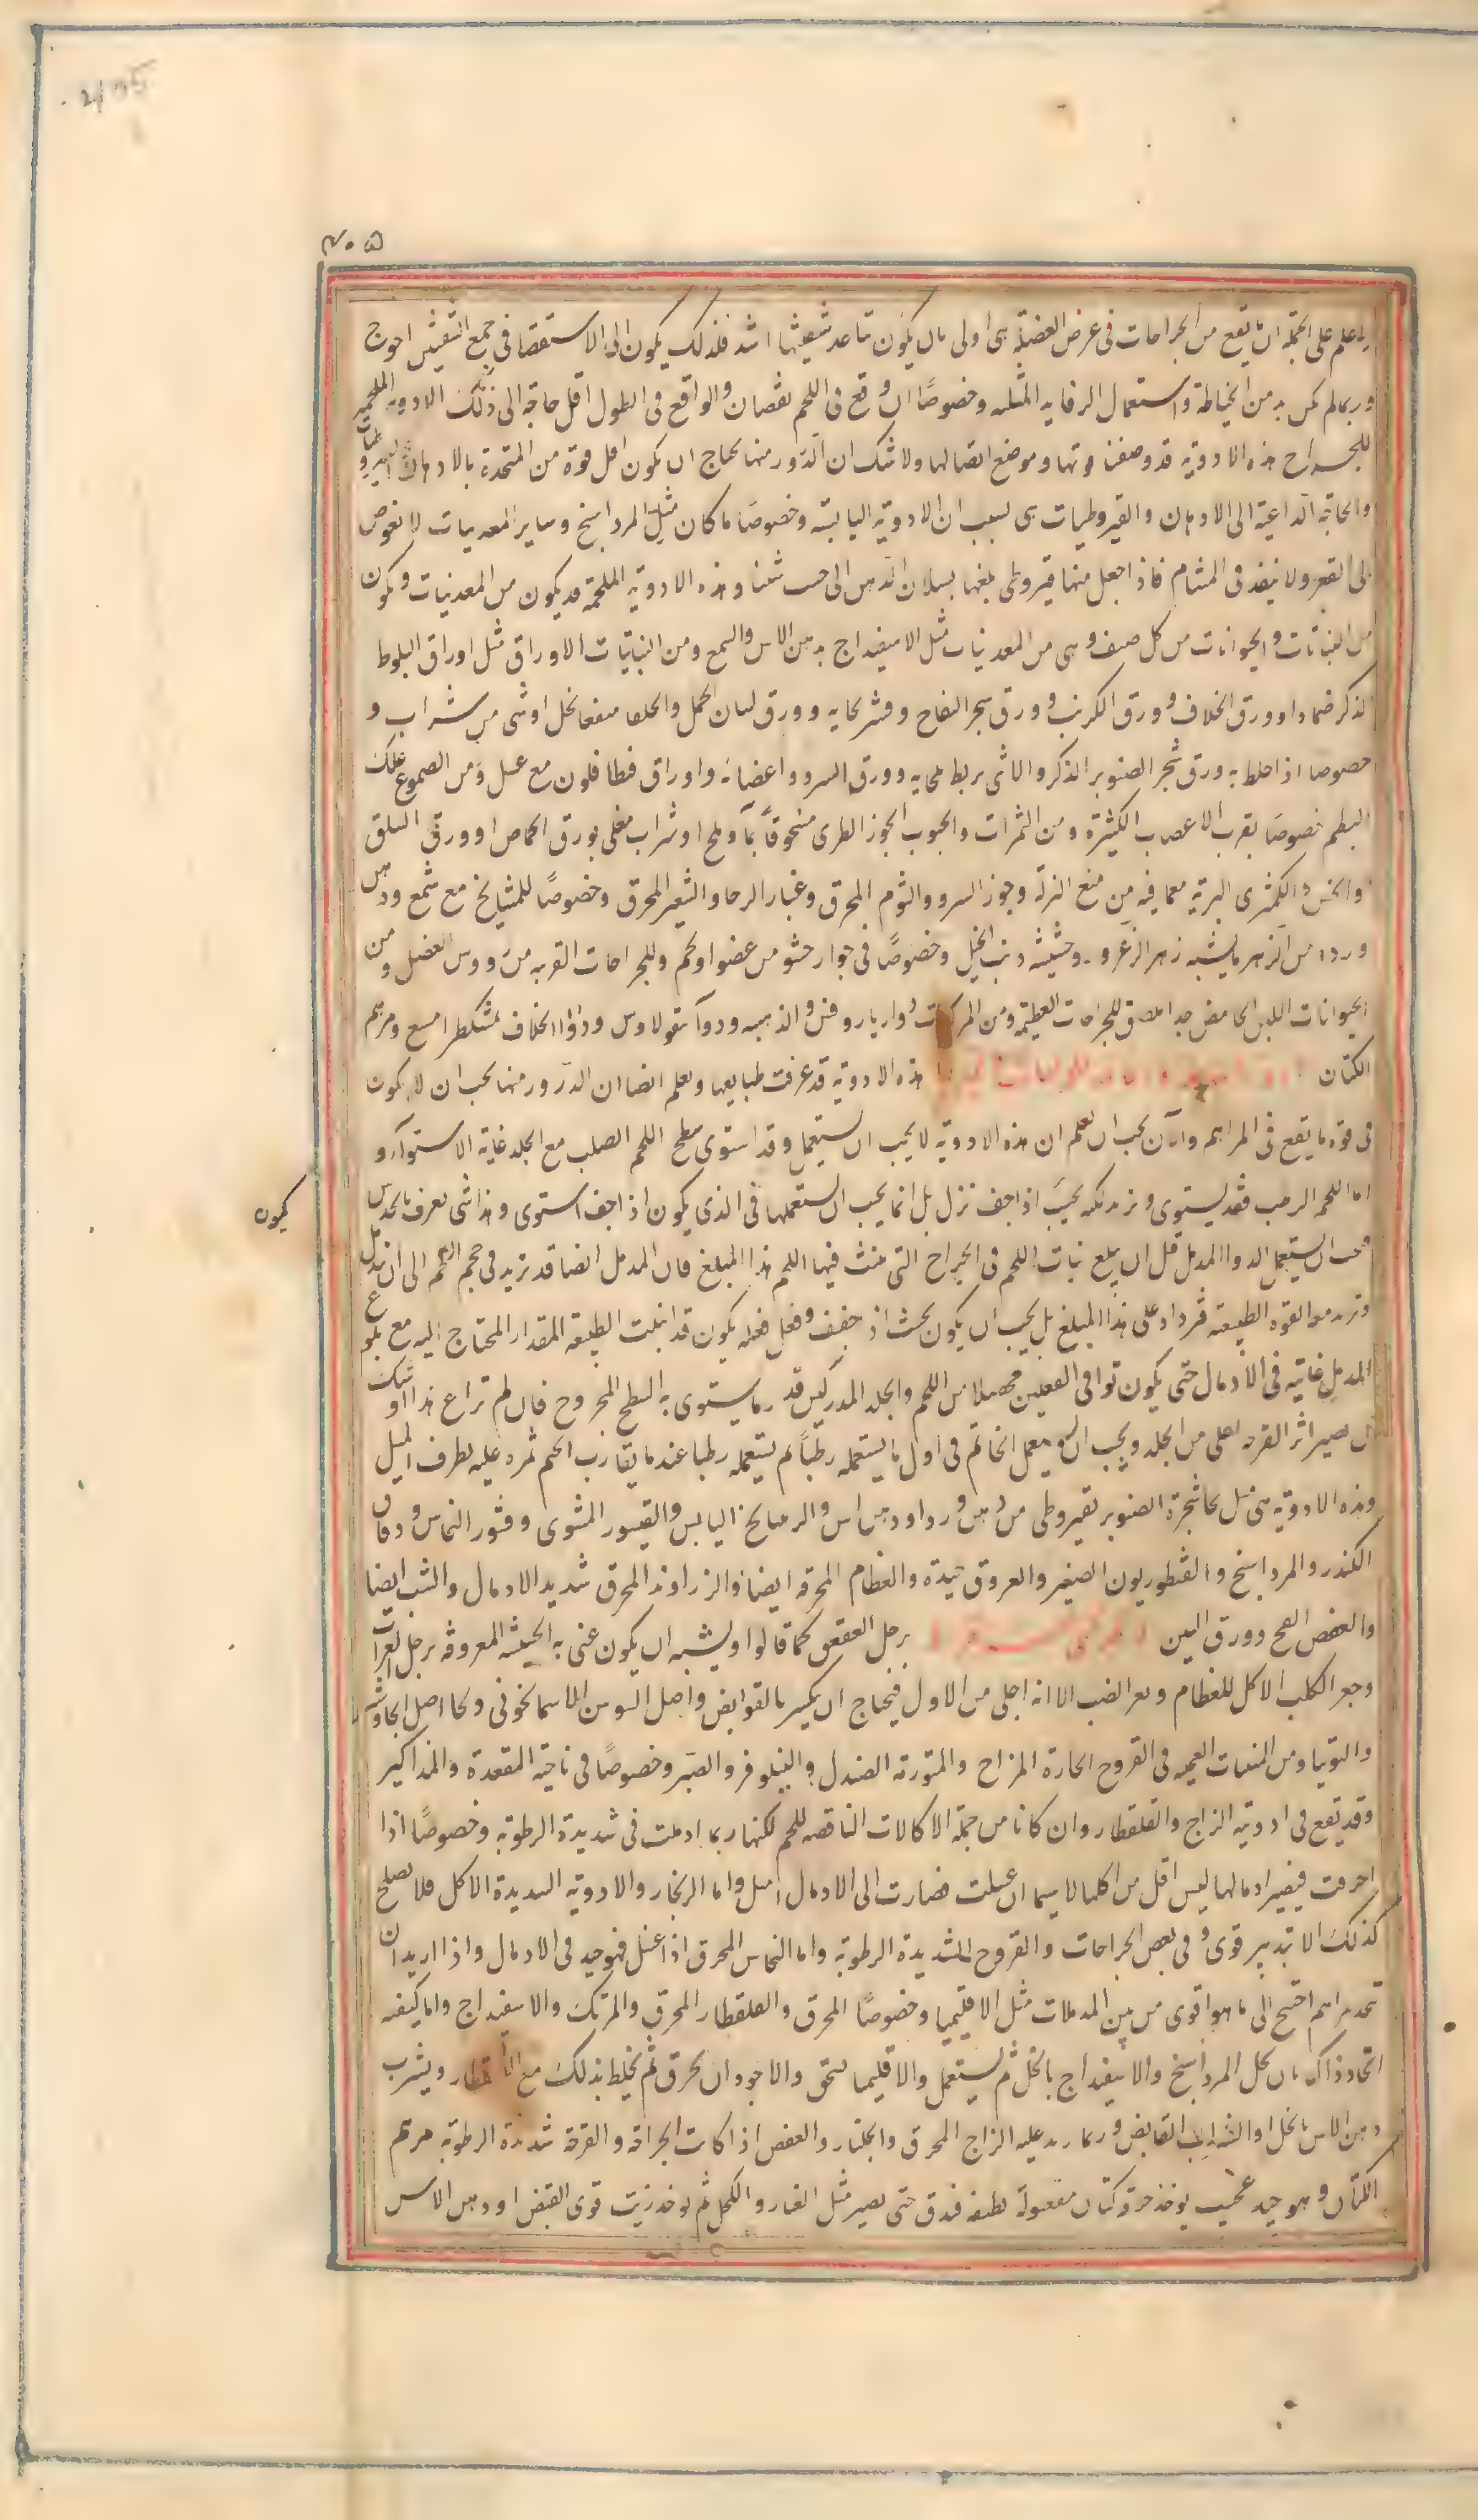 ٤٠٥
واعلم على الجملة ان ما يقع من الجراحات فى عرض العضلة هى اولى بان يكون تباعد شفتيها اشد فلذلك يكون الى الاستقصا فى جمع الشفتين احوج
وربما لم يكن بد من الخياطة واستعمال الرفايد المثلثه وخصوصًا ان وقع فى اللحم نقصان والواقع فى الطول اقل حاجة الى ذلك الادوية الملحمة
للجراح هذه الادوية قد وصفنا قوتها وموضع اتصالها ولا شك ان الذرور منها يحتاج ان يكون اقل قوة من المتخذة بالادهان
والحاجة الداعية الى الادهان والقيروطيات هى بسبب ان الادوية اليابسة وخصوصًا ما كان مثل المرداسنج وساير المعدنيات لا يغوص
الى القعر ولا ينفذ فى المسام فاذا جعل منها قيروطى بلغها بسيلان الدهن الى حيث شئنا وهذه الادوية الملحمة قد يكون من المعدنيات ويكون
من النباتات والحيوانات من كل صنف وهى من المعدنيات مثل الاسفيداج بدهن الاس والشمع ومن النباتيات الاوراق مثل اوراق البلوط
الذكر ضمادا وورق الخلاف وورق الكرنب وورق شجر التفاح وقشر لحايه وورق لسان الحمل والحلفا منقعا بخل او شى من شراب و
خصوصا اذا خلط به ورق شجر الصنوبر الذكر والانثى يربط بلحايه وورق السرو واغصانه واوراق فنطافلون مع عسل ومن الصموغ علك
البطم خصوصًا بقرب الاعصاب الكثيرة ومن الثمرات والحبوب الجوز الطرى مسحوقًا بمآ وملح او شراب مغلى بورق الحماض او ورق السلق
والخس والكمثرى البرية معما فيه من منع النزلة وجوز السرو والثوم المحرق وغبار الرحا والشعير المحرق وخصوصًا للمشايخ مع شمع ودهن
ورد ومن الزهر ما يشبه زهر الزعرور وحشيشة ذنب الخيل وخصوصًا فى جوار حشو من عضو او لحم وللجراحات القريبه من رووس العضل ومن
الحيوانات اللبن الحامض جدا ملصق للجراحات العظيمة ومن المركبات دوا ودوا الخلاف ومرهم
الكتان هذه الادوية قد عرفت طبايعها وتعلم ايضا ان الذرور منها يجب ان لا يكون
فى قوة ما يقع فى المراهم والآن يجب ان تعلم ان هذه الادوية لا يجب ان يستعمل وقد استوى سطح اللحم الصلب مع الجلد غاية الاستوآء و
اما اللحم الرهب فقد يستوى ويزيد لكنه يجب اذا جف نزل بل انما يجب ان يستعملها فى الذى يكون اذا جف استوى وهذا شى يعرف بالحدس
يكون
فيجب ان يستعمل الدوا المدمل قبل ان يبلغ نبات اللحم فى الجراح التى ينبت فيها اللحم هذا المبلغ فان المدمل ايضا قد تزيد فى حجم اللحم الى ان يدمل
وتزيد معه القوة الطبيعية فيزداد على هذا المبلغ بل يجب ان يكون بحيث اذا جفف وفعل فعله يكون قد انبتت الطبيعة المقدار المحتاج اليه مع بلوغ
المدمل غايته فى الادمال حتى يكون توافى الفعلين محصلا من اللحم والجلد المدركين قدر ما يستوى به السطح المجروح فان لم تراع هذا اوشك
ان يصير اثر القرحه اعلى من الجلد ويجب ان يستعمل الخاتم فى اول ما يستعمله رطبًا ثم يستعمله رطبا عند ما يقارب الختم ثم ذره عليه بطرف الميل
وهذه الادوية هى مثل لحا شجرة الصنوبر بقيروطى من دهن ورد او دهن اس والرميانج اليابس والقيسور المشوى وقشور النحاس ودقاق
الكندر والمرداسنج والقنطوريون الصغير والعروق جيدة والعظام المحرقه ايضا والزراوند المحرق شديد الادمال والشب ايضا
والعفص الفج وورق التين برجل العقعق كما قالوا ويشبه ان يكون عنى به الحشيشة المعروفة برجل الغراب
وجعر الكلب الاكل للعظام وبعر الضب الا انه اجلى من الاول فيحتاج ان يكسر بالقوابض واصل السوسن الاسمانجونى ولحا اصل الجاوشير
والتوتيا ومن المنبتات العجيبه فى القروح الحارة المزاج والمتورمة الصندل والنيلوفر والصبر وخصوصًا فى ناحية المقعدة والمذاكير
وقد يقع فى ادوية الزاج والقلقطار وان كانا من جملة الاكالات الناقصه للحم لكنها ربما ادملت فى شديدة الرطوبة وخصوصًا اذا
احرقت فيصير ادمالها ليس اقل من اكلها لاسيما ان غسلت فصارت الى الادمال اميل واما الزنجار والادوية الشديدة الاكل فلا يصلح
كذلك الا بتدبير قوى وفى بعض الجراحات والقروح الشديدة الرطوبة واما النحاس المحرق اذا غسل فهو جيد فى الادمال واذا اريد ان
تتخذ مراهم احتيج الى ما هو اقوى من بين المدملات مثل الاقليميا وخصوصًا المحرق والقلقطار المحرق والمرتك والاسفيداج واما كيفيه
اتخاذ ذاك بان يحل المرداسنج والاسفيداج بالخل ثم يستعمل والاقليميا يسحق والاجود ان يحرق ثم يخلط بذلك مع القلقطار ويشرب
دهن الاس بالخل او الشراب القابض وربما زيد عليه الزاج المحرق والجلنار والعفص اذا كانت الجراحة والقرحة شديدة الرطوبة مرهم
الكتان وهو جيد عجيب يوخذ خرقة كتان مغسولة نظيفه فتدق حتى يصير مثل الغبار والكحل ثم يوخذ زيت قوى القبض او دهن الاس